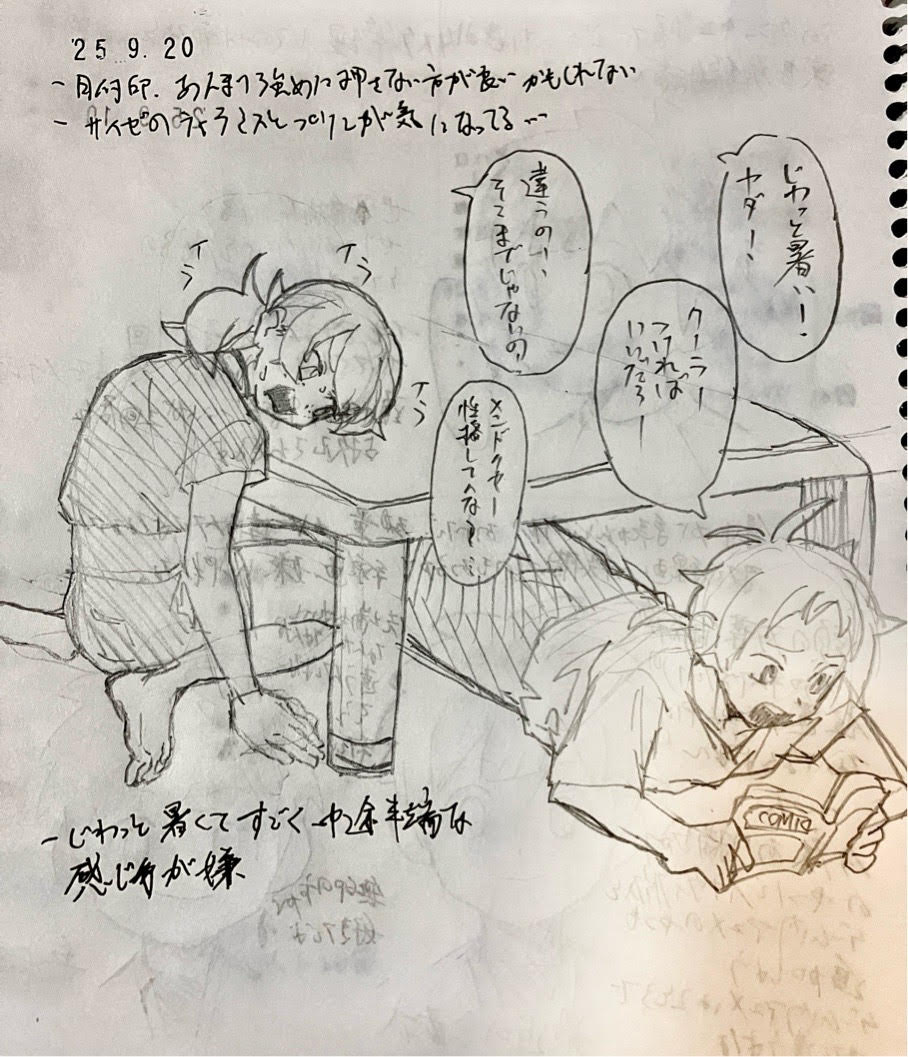 '25.9.20
- 日付印、あんまり強めに押さない方が良いかもしれない
- サイゼのティラミスとプリンが気になってる…
じわっと暑い!
ヤダー!
クーラー
つければ
いいだろー
違うのー、
そこまでじゃないの!
メンドクセー
性格してんな?
イラ
イラ
イラ
COMIC
- じわっと暑くてすごく中途半端な
感じ方が嫌